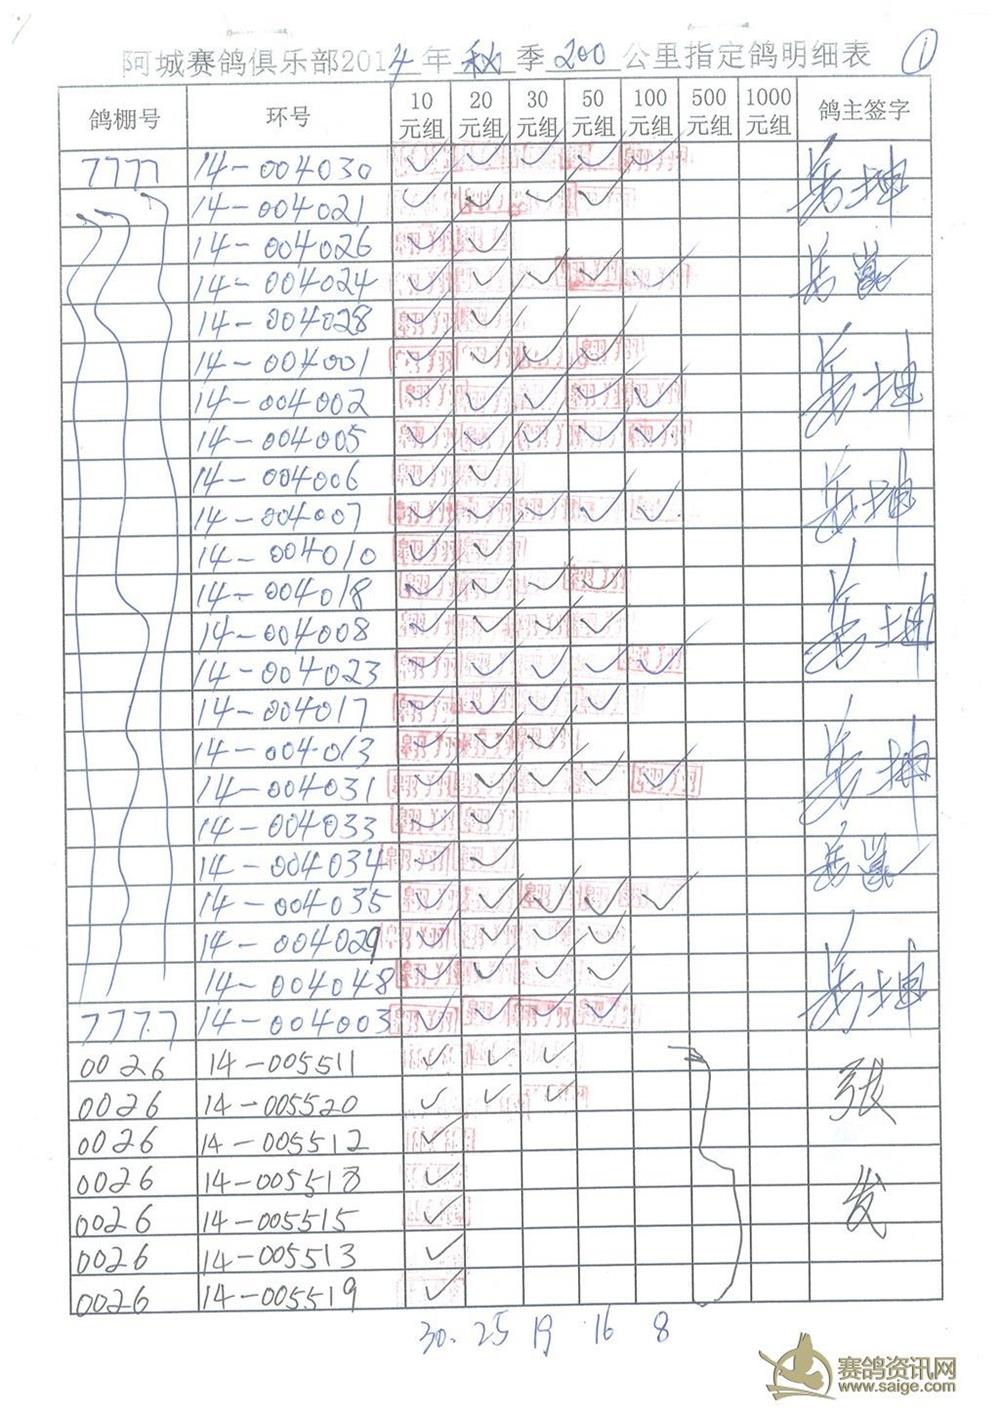 阿城赛鸽俱乐部2014年秋季200公里指定鸽明细表 ①
鸽棚号 环号 10元组 20元组 30元组 50元组 100元组 500元组 1000元组 鸽主签字
7777 14-004030 ✓ ✓ ✓ ✓ ✓
14-004021 ✓ ✓ ✓ ✓
14-004026 ✓ ✓
14-004024 ✓ ✓ ✓ ✓ ✓
14-004028 ✓ ✓
14-004001 ✓ ✓ ✓ ✓
14-004002 ✓ ✓ ✓ ✓ ✓
14-004005 ✓ ✓ ✓ ✓ ✓
14-004006 ✓ ✓
14-004007 ✓ ✓ ✓ ✓ ✓
14-004010 ✓ ✓
14-004018 ✓ ✓ ✓ ✓
14-004008 ✓ ✓ ✓ ✓
14-004023 ✓ ✓ ✓ ✓ ✓
14-004017 ✓ ✓ ✓ ✓
14-004013 ✓ ✓ ✓
14-004031 ✓ ✓ ✓ ✓ ✓
14-004033 ✓ ✓
14-004034 ✓ ✓
14-004035 ✓ ✓ ✓ ✓ ✓
14-004029 ✓ ✓ ✓ ✓
14-004048 ✓ ✓ ✓ ✓
7777 14-004003 ✓ ✓ ✓ ✓
0026 14-005511 ✓ ✓ ✓ 张
0026 14-005520 ✓ ✓ ✓
0026 14-005512 ✓
0026 14-005518 ✓ 发
0026 14-005515 ✓
0026 14-005513 ✓
0026 14-005519 ✓
30. 25 19 16 8
赛鸽资讯网
www.saige.com